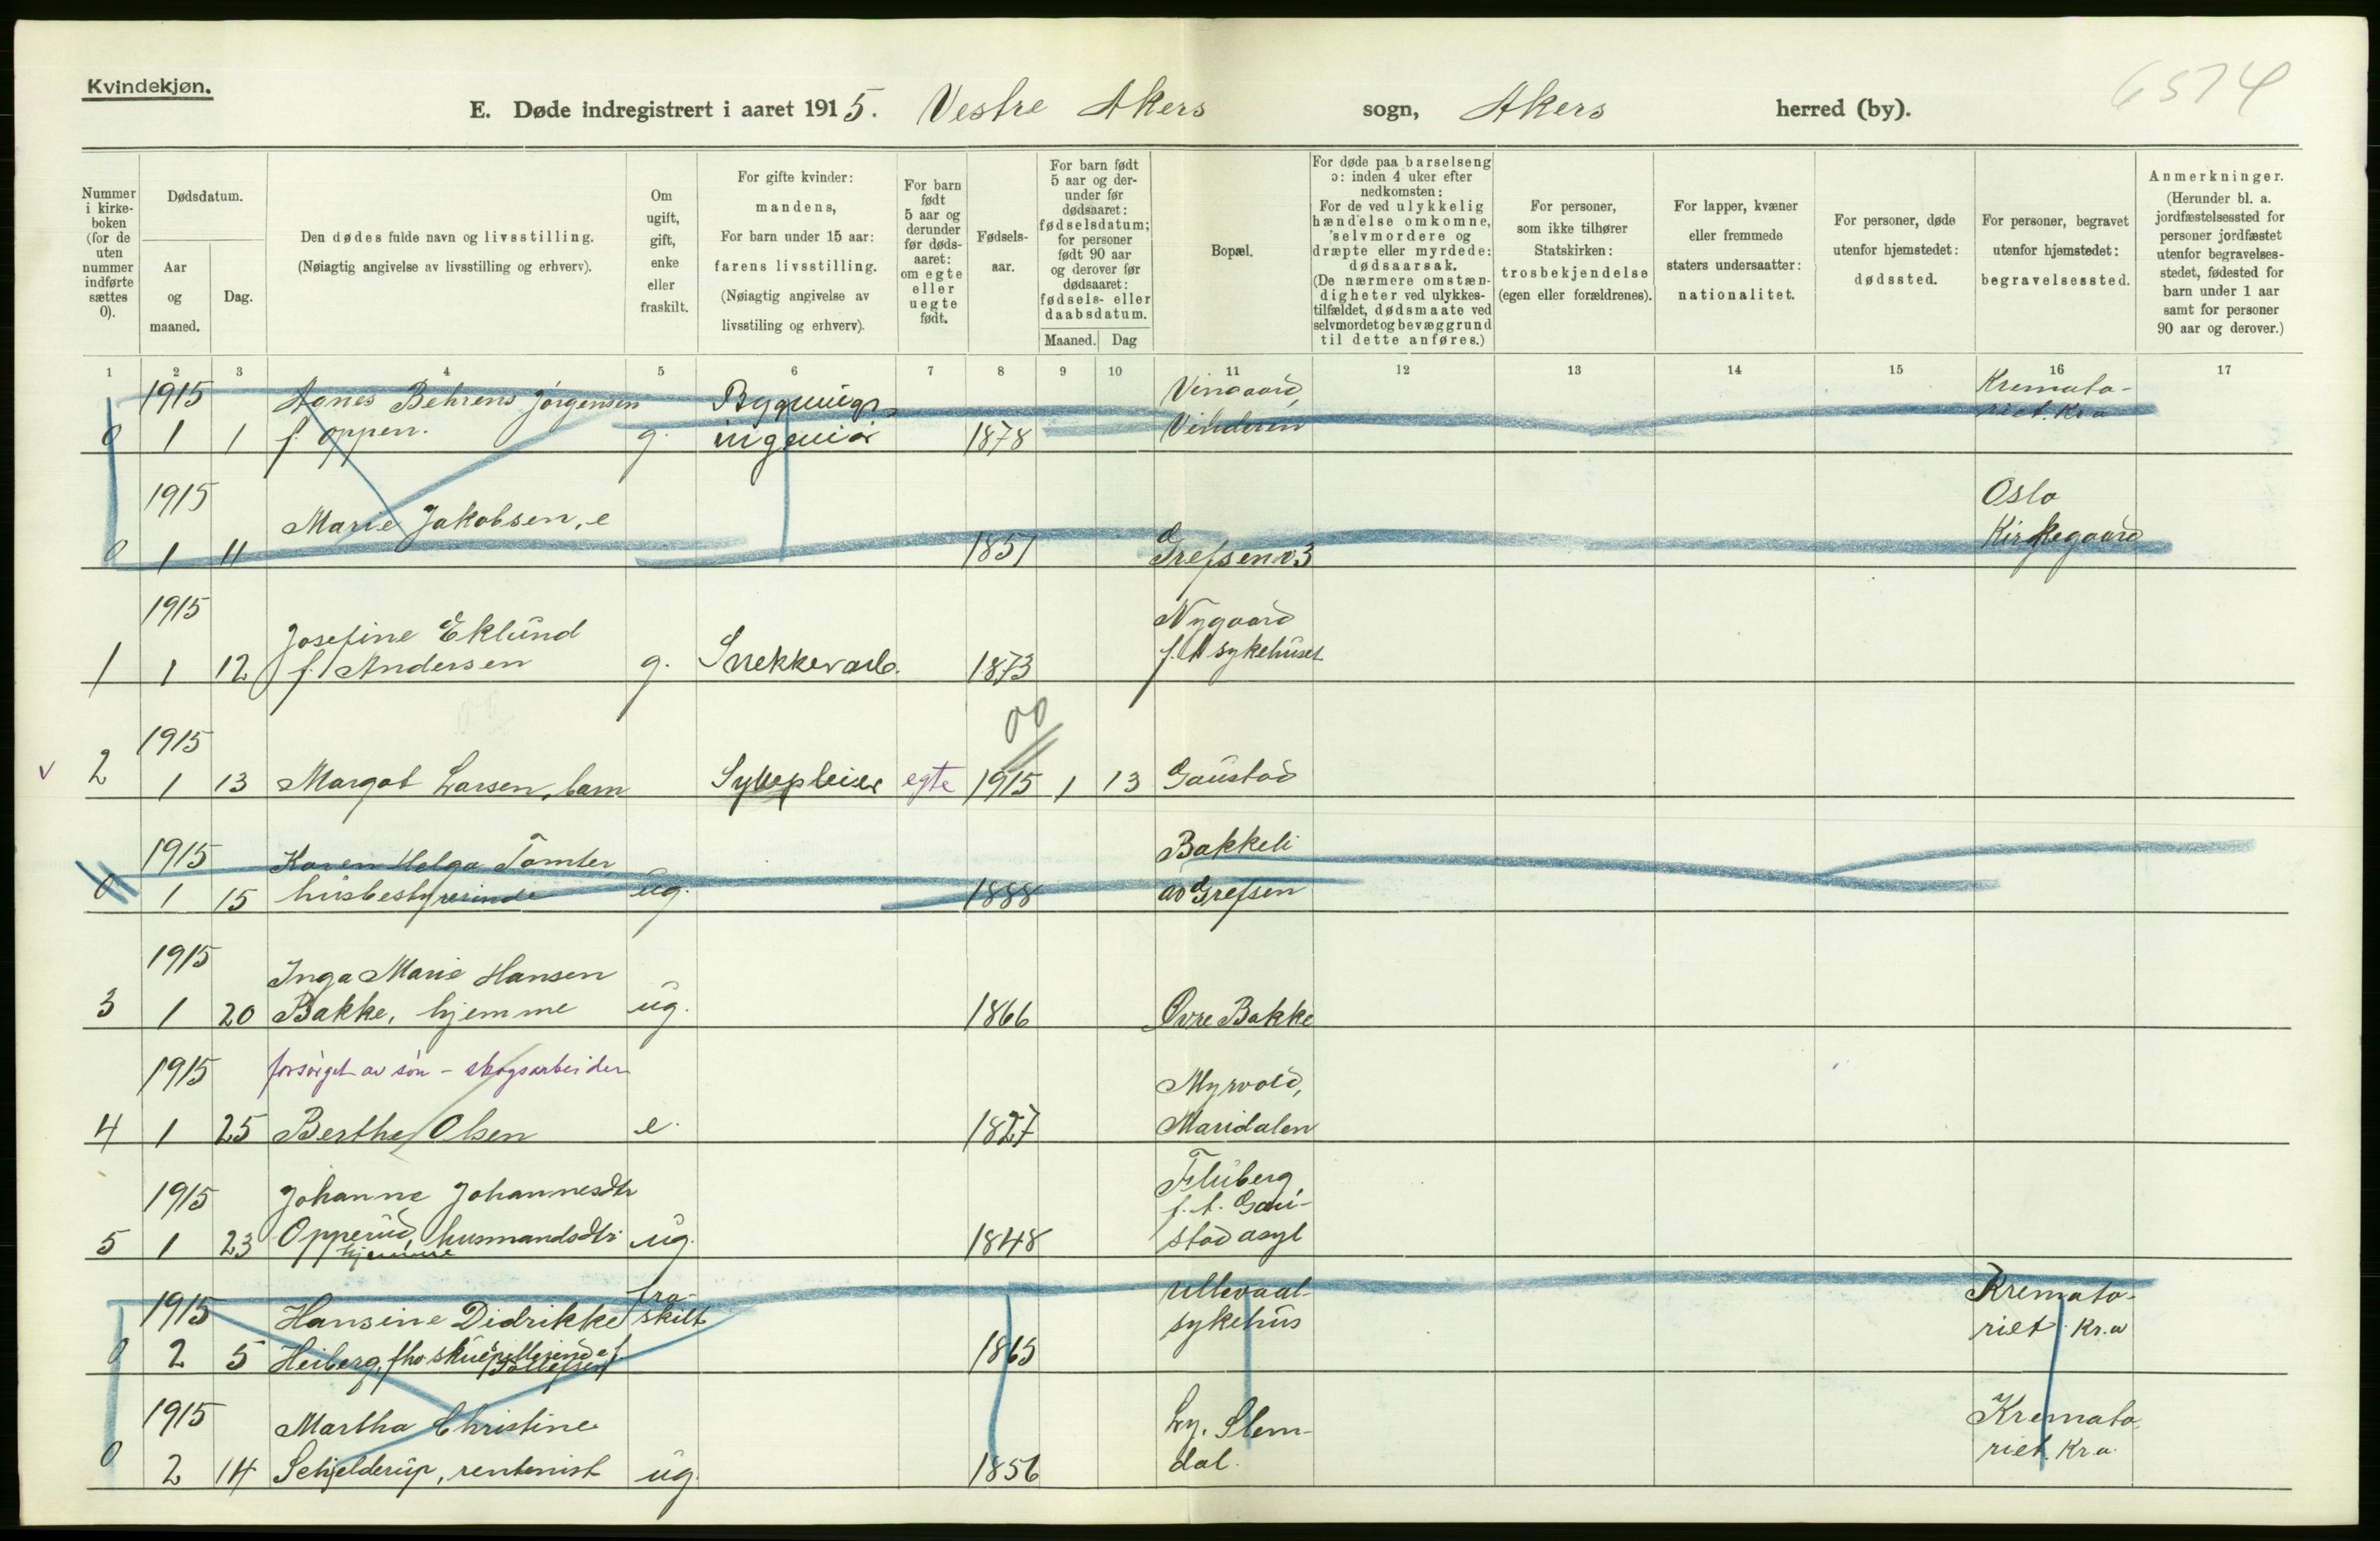 Kvindekjøn.
6574
E. Døde indregistrert i aaret 1915. Vestre Akers sogn, Akers herred (by).
Nummer i kirke-boken (for de uten nummer indførte sættes 0).
Dødsdatum.
Aar og maaned.
Dag.
Den dødes fulde navn og livsstilling.
(Nøiagtig angivelse av livsstilling og erhverv).
Om ugift, gift, enke eller fraskilt.
For gifte kvinder: mandens, For barn under 15 aar: farens livsstilling. (Nøiagtig angivelse av livsstiling og erhverv).
For barn født 5 aar og derunder før døds-aaret: om egte eller uegte født.
Fødsels-aar.
For barn født 5 aar og der-under før dødsaaret: fødselsdatum; for personer født 90 aar og derover før dødsaaret: fødsels- eller daabsdatum.
Maaned. Dag
Bopæl.
For døde paa barselseng ɔ: inden 4 uker efter nedkomsten: For de ved ulykkelig hændelse omkomne, selvmordere og dræpte eller myrdede: dødsaarsak. (De nærmere omstæn-digheter ved ulykkes-tilfældet, dødsmaate ved selvmordet og bevæggrund til dette anføres.)
For personer, som ikke tilhører Statskirken: trosbekjendelse (egen eller forældrenes).
For lapper, kvæner eller fremmede staters undersaatter: nationalitet.
For personer, døde utenfor hjemstedet: dødssted.
For personer, begravet utenfor hjemstedet: begravelsessted.
Anmerkninger. (Herunder bl. a. jordfæstelsessted for personer jordfæstet utenfor begravelses-stedet, fødested for barn under 1 aar samt for personer 90 aar og derover.)
1 2 3 4 5 6 7 8 9 10 11 12 13 14 15 16 17
1915 Agnes Behrens Jørgensen Bygnings- Vingaard, Kremato-
0 1 1 f. Oppen. g. ingeniør 1878 Vinderen riet. Kr.a
1915 Oslo
Marie Jakobsen, e Kirkegaard
0 1 11 1851 Grefsenv. 3
1915 Nygaard
Josefine Eklund f. t. sykehuset
1 1 12 f. Andersen g. Snekkerarb. 1873
1915 00
2 1 13 Margot Larsen, barn Sykepleier egte 1915 1 13 Gaustad
1915 Karen Helga Tomter, Bakkeli
0 1 15 husbestyrerinde ug. 1888 av Grefsen
1915 Inga Marie Hansen
3 1 20 Bakke, hjemme ug. 1866 Øvre Bakke
1915 forsørget av søn - skogsarbeider Myrvold,
4 1 25 Berthe Olsen e. 1827 Maridalen
1915 Johanne Johannesdtr Fluberg
f. t. Gau-
5 1 23 Opperud, husmandsdtr ug. 1848 stad asyl
hjemme
1915 Hansine Didrikke fra-skilt Ullevaal- Kremato-
sykehus riet. Kr.a
0 2 5 Heiberg, fhv skuespillerinde f. Tollefsen 1865
1915 Martha Christine Ly. Slem- Kremato-
0 2 14 Schjelderup, rentenist ug. 1856 dal. riet. Kr.a.